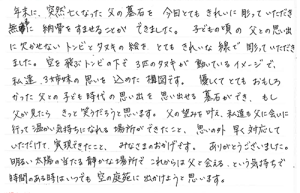 年末に、突然亡くなった父の墓石を 今日とてもきれいに彫っていただき
無事に 納骨をすませることが できました。子どもの頃の 父との思い出
に欠かせないトンビとタヌキの絵を、とてもきれいな線で彫っていただき
ました。空を飛ぶトンビの下で 3匹のタヌキが 動いているイメージで、
私達、3姉妹の思いを込めた 構図です。優しくてとてもおもしろ
かった父との子ども時代の思い出を 思い出せる墓石ができ、もし
父が見たら きっと笑うだろうと思います。父の望みを叶え、私達も父に会いに
行って温かい気持ちになれる場所ができたこと、思いの外 早く対応して
いただけて実現できたこと、みなさまのおかげです。ありがとうございました。
明るい太陽の当たる静かな場所で これからは父と会える、という気持ちで
時間のある時はいつでも空の庭苑に 出かけようと思います。